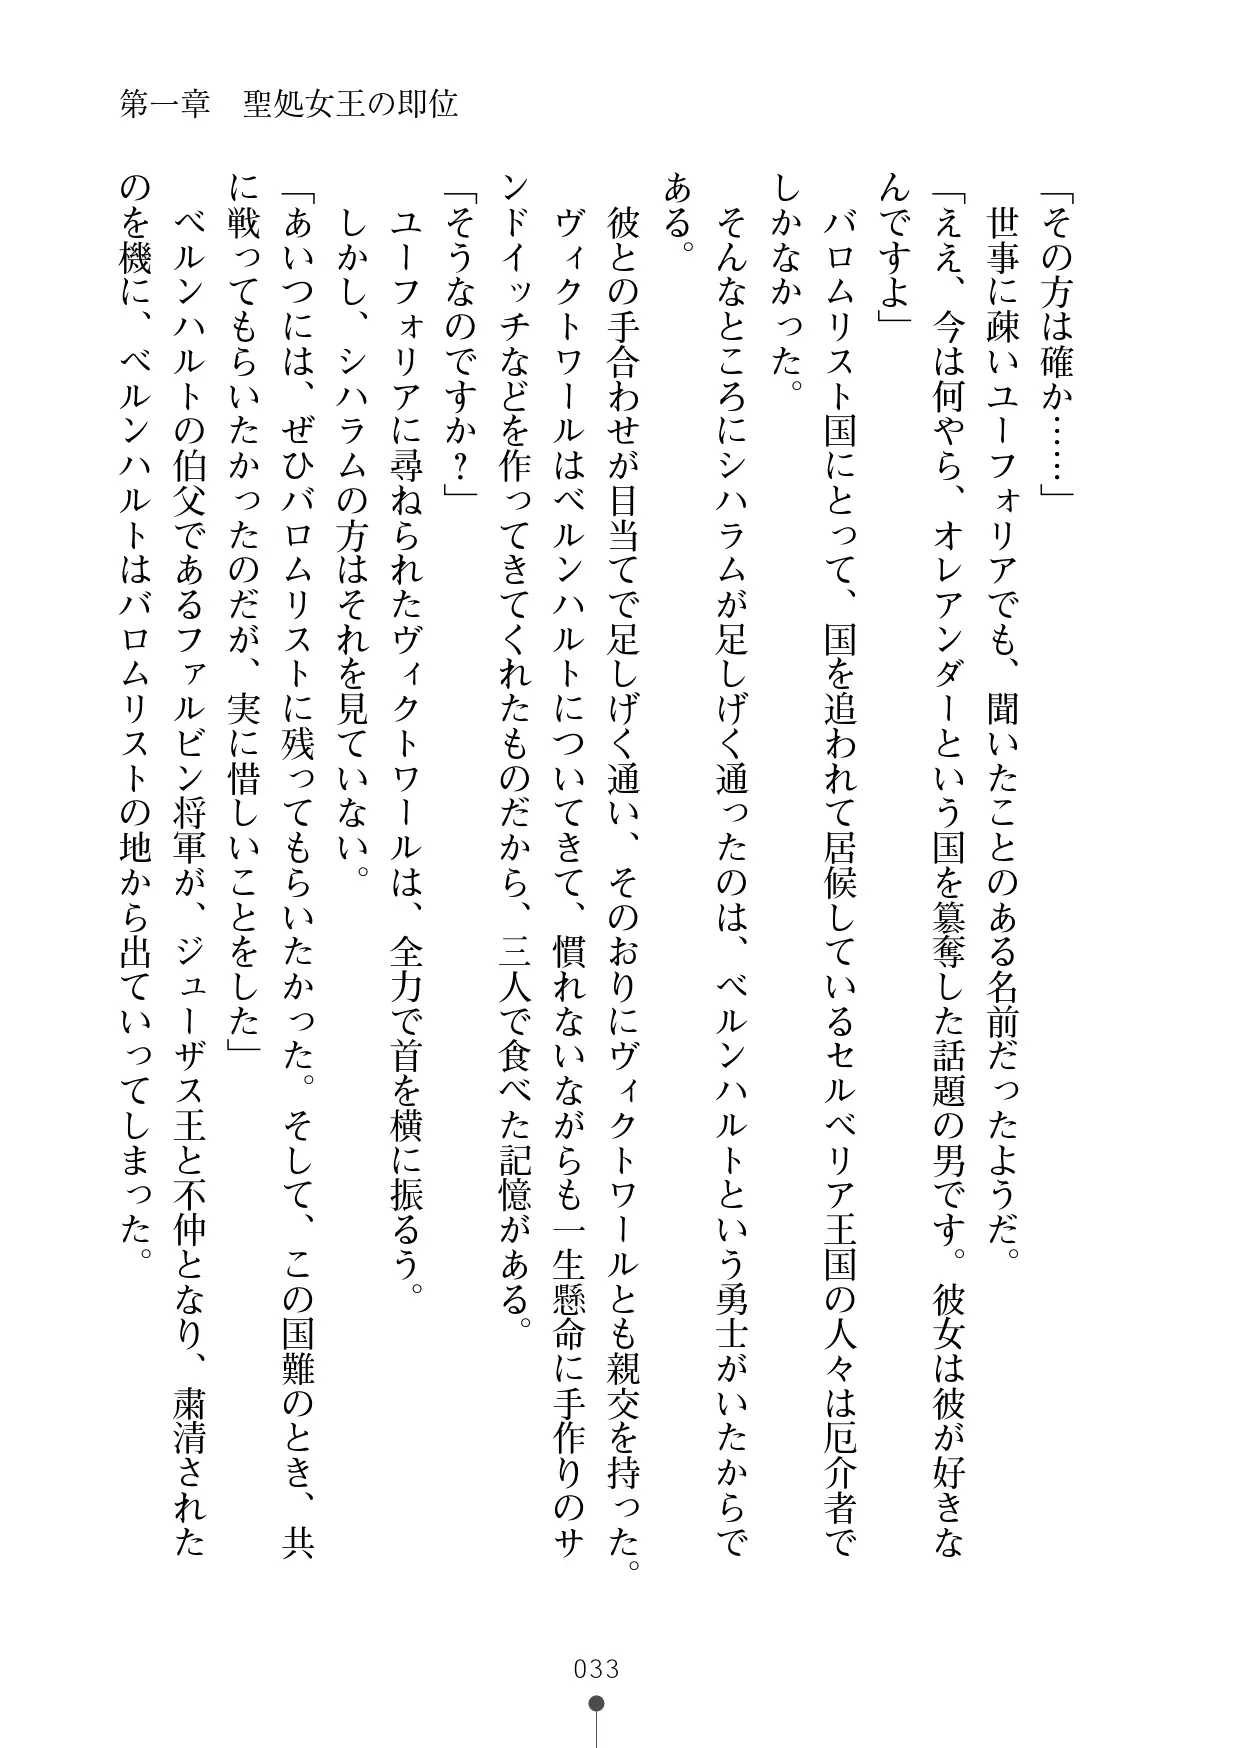 第一章　聖処女王の即位
「その方は確か……」
　世事に疎いユーフォリアでも、聞いたことのある名前だったようだ。
「ええ、今は何やら、オレアンダーという国を簒奪した話題の男です。彼女は彼が好きな
んですよ」
　バロムリスト国にとって、国を追われて居候しているセルベリア王国の人々は厄介者で
しかなかった。
　そんなところにシハラムが足しげく通ったのは、ベルンハルトという勇士がいたからで
ある。
　彼との手合わせが目当てで足しげく通い、そのおりにヴィクトワールとも親交を持った。
　ヴィクトワールはベルンハルトについてきて、慣れないながらも一生懸命に手作りのサ
ンドイッチなどを作ってきてくれたものだから、三人で食べた記憶がある。
「そうなのですか？」
　ユーフォリアに尋ねられたヴィクトワールは、全力で首を横に振るう。
　しかし、シハラムの方はそれを見ていない。
「あいつには、ぜひバロムリストに残ってもらいたかった。そして、この国難のとき、共
に戦ってもらいたかったのだが、実に惜しいことをした」
　ベルンハルトの伯父であるファルビン将軍が、ジューザス王と不仲となり、粛清された
のを機に、ベルンハルトはバロムリストの地から出ていってしまった。
033